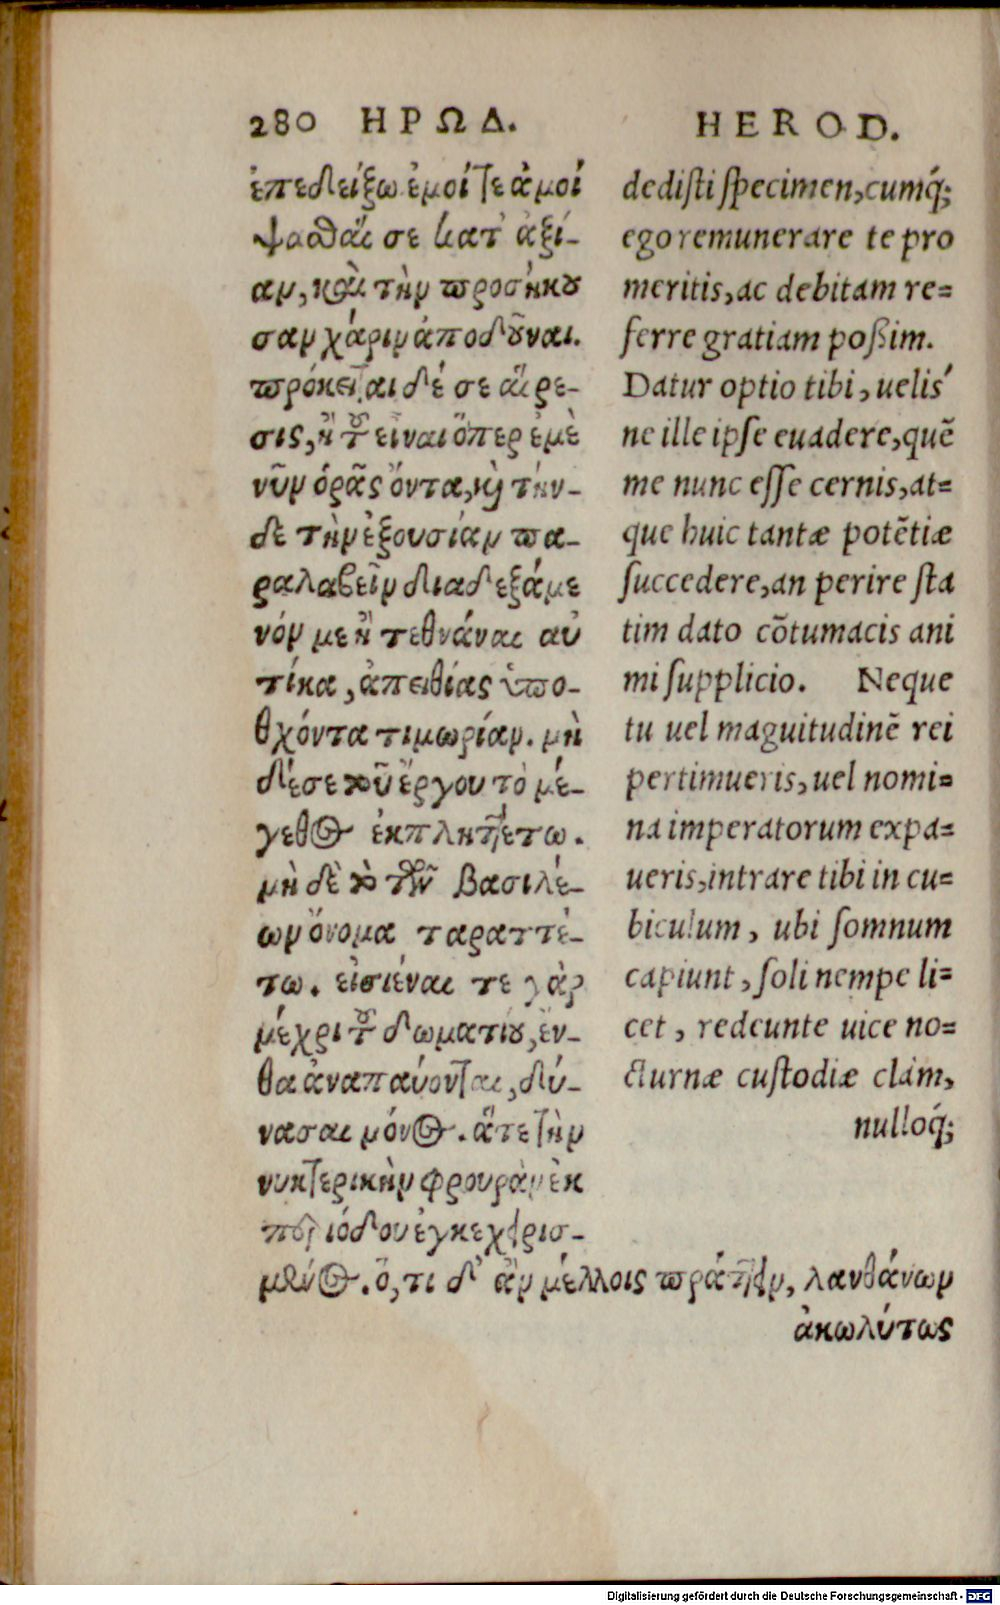 280 ΗΡΩΔ.
ἐπεδείξω ἐμοί τε ἀμοί
ψασθαί σε κατ' ἀξί-
αν, καὶ τὴν προσήκου
σαν χάριν ἀποδοῦναι.
πρόκειται δέ σε αἵρε-
σις, ἢ τοῦ εἶναι ὅπερ ἐμὲ
νῦν ὁρᾷς ὄντα, καὶ τήν-
δε τὴν ἐξουσίαν πα-
ραλαβεῖν διαδεξάμε
νόν με ἢ τεθνάναι αὐ
τίκα, ἀπειθίας ὑπο-
θχόντα τιμωρίαν. μὴ
δέ σε τοῦ ἔργου τὸ μέ-
γεθος ἐκπληττέτω.
μὴ δὲ τὸ τῶν βασιλέ-
ων ὄνομα ταραττέ-
τω. εἰσιέναι τε γὰρ
μέχρι τοῦ δωματίου, ἔν-
θα ἀναπαύονται, δύ-
νασαι μόνος. ἅτε τὴν
νυκτερικὴν φρουρὰν ἐκ
περιόδου ἐγκεχειρισ-
μένος. ὅ,τι δ' ἂν μέλλοις πράττειν, λανθάνων
ἀκωλύτως
HEROD.
dedisti specimen, cumq́;
ego remunerare te pro
meritis, ac debitam re=
ferre gratiam poßim.
Datur optio tibi, uelis'
ne ille ipse euadere, quē
me nunc esse cernis, at=
que huic tantæ potētiæ
succedere, an perire sta
tim dato cōtumacis ani
mi supplicio. Neque
tu uel maguitudinē rei
pertimueris, uel nomi=
na imperatorum expa=
ueris, intrare tibi in cu=
biculum, ubi somnum
capiunt, soli nempe li=
cet, redeunte uice no=
cturnæ custodiæ clàm,
nulloq́;
Digitalisierung gefördert durch die Deutsche Forschungsgemeinschaft - DFG